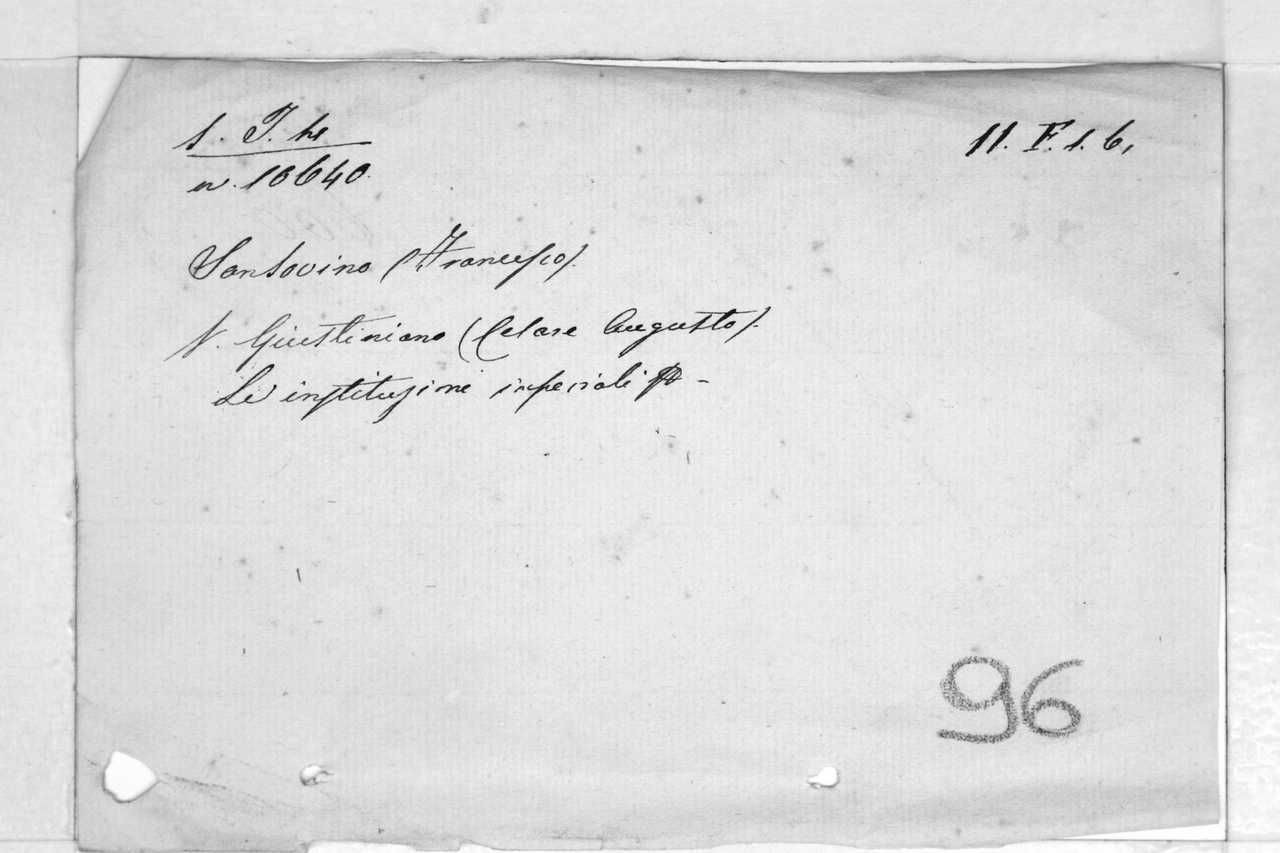 S. I. hs
n. 10640.
11. F. 1. 6.
Sansovino (Francesco).
V. Giustiniano (Cesare Augusto).
Le instituzioni imperiali
96